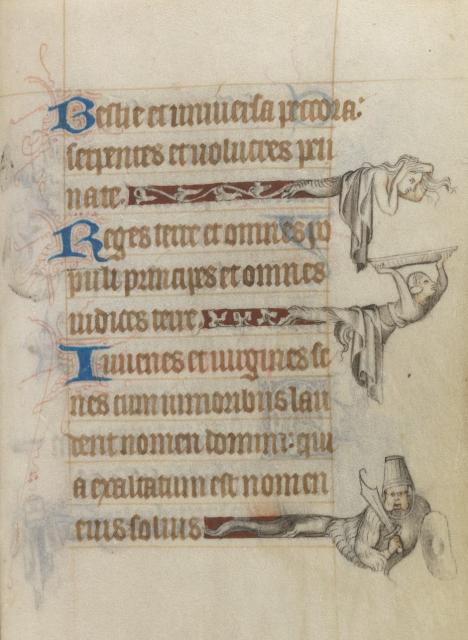 Bestie et universa peccora:
serpentes et volucres pen
nate.
Reges terre et omnes po
puli principes et omnes
iudices terre
Iuvenes et virgines se
nes cum iunioribus lau
dent nomen domini: qui
a exaltatum est nomen
eius solius